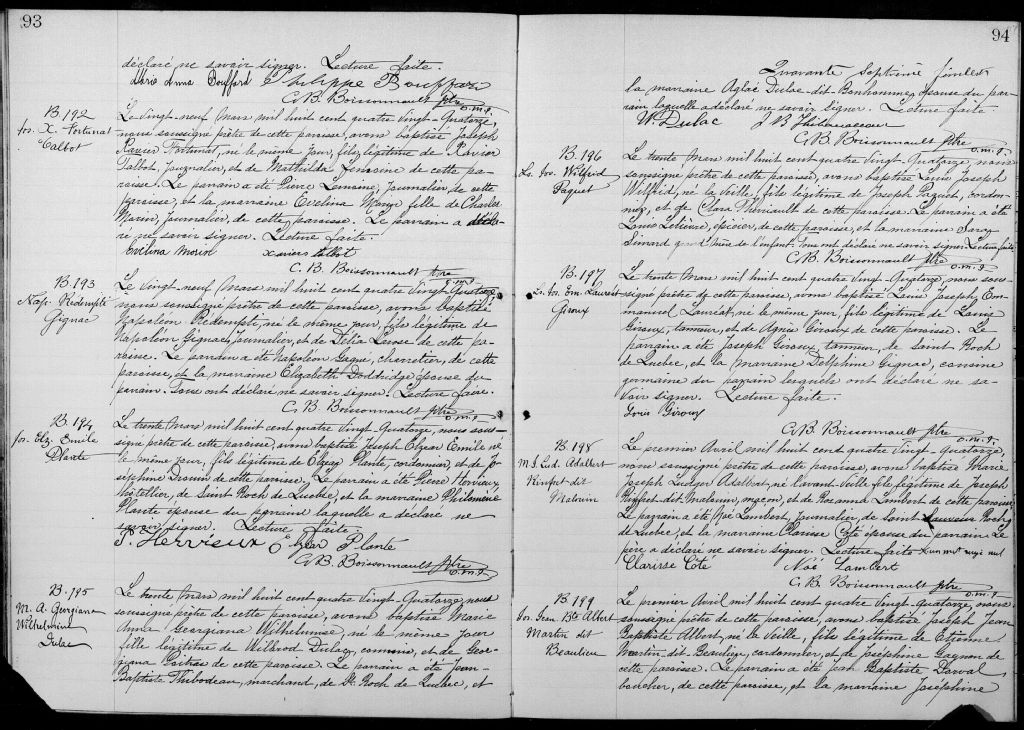 93
déclaré ne savoir signer. Lecture faite.
Marie Anna Bouffard Philippe Bouffard
C. B. Boissonnault ptre
o.m.i.
B. 192
Jos. X. Fortunat
Talbot
Le vingt-neuf Mars mil huit cent quatre vingt-Quatorze,
nous soussigné prêtre de cette paroisse, avons baptisé Joseph
Xavier Fortunat, né le même jour, fils légitime de Xavier
Talbot, journalier, et de Mathilda Lemoine de cette pa-
roisse. Le parrain a été Pierre Lemoine, journalier de cette
paroisse, et la marraine Evelina Morin fille de Charles
Morin, journalier, de cette paroisse. Le parrain a décla-
ré ne savoir signer. Lecture faite.
Evelina Morin Xavier Talbot
C. B. Boissonnault ptre
o.m.i.
B. 193
Nap. Rédempté
Gignac
Le vingt-neuf Mars mil huit cent quatre vingt-Quatorze,
nous soussigné prêtre de cette paroisse, avons baptisé
Napoléon Rédempté, né le même jour, fils légitime de
Napoléon Gignac, journalier, et de Délia de cette pa-
roisse. Le parrain a été Napoléon charretier, de cette
paroisse, et la marraine Elizabeth Doddridge épouse du
parrain. Tous ont déclaré ne savoir signer. Lecture faite.
C. B. Boissonnault ptre
o.m.i.
B. 194
Jos. Elz. Emile
Plante
Le trente Mars mil huit cent quatre vingt-Quatorze, nous sous-
signé prêtre de cette paroisse, avons baptisé Joseph Elzear Emile né
le même jour, fils légitime de Elzear Plante, cordonnier, et de Jo-
séphine Drouin de cette paroisse. Le parrain a été Pierre Hervieux,
hôtellier, de Saint Roch de Québec, et la marraine Philomène
Plante épouse du parrain laquelle a déclaré ne
savoir signer. Lecture faite
P. Hervieux Elzear Plante
C. B. Boissonnault ptre
o.m.i.
B. 195
M. A. Georgiana
Wilhelmine
Dulac
Le trente Mars mil huit cent quatre vingt-Quatorze, nous
soussigné prêtre de cette paroisse, avons baptisé Marie
Anna Georgiana Wilhelmine, né le même jour
fille légitime de Wilbrod Dulac, commis, et de Geor-
giana Poitras de cette paroisse. Le parrain a été Jean-
Baptiste Thibodeau, marchand, de St. Roch de Québec, et
94
Quarante Septième feuillet
la marraine Aglaé Dulac-dit-Bonhomme, épouse du par-
rain laquelle a déclaré ne savoir signer. Lecture faite
W. Dulac J B Thibaudeau
C. B. Boissonnault ptre
o.m.i.
B. 196
Ls. Jos. Wilfrid
Paquet
Le trente Mars mil huit cent quatre vingt-Quatorze nous
soussigné prêtre de cette paroisse, avons baptisé Louis Joseph
Wilfrid, né la veille, fils légitime de Joseph Paquet, cordon-
nier, et de Clara Thériault de cette paroisse. Le parain a été
Louis épicier, de cette paroisse, et la marraine Saray
Simard grand'mère de l'enfant. Tous ont déclaré ne savoir signer. Lecture faite
C. B. Boissonnault ptre
o.m.i.
B. 197
Ls. Jos. Em. Lauréat
Giroux
Le trente Mars mil huit cent quatre vingt-Quatorze nous sous-
signé prêtre de cette paroisse, avons baptisé Louis Joseph, Em-
manuel Lauréat, né le même jour, fils légitime de Louis
Giroux, tanneur, et de Agnès Giroux de cette paroisse. Le
parrain a été Joseph Giroux, tanneur, de Saint Roch
de Québec, et la marraine Delphine Gignac, cousine
germaine du parrain lesquels ont déclaré ne sa-
voir signer. Lecture faite.
Louis Giroux
C. B. Boissonnault ptre
o.m.i.
B. 198
M. J. Lud. Adalbert
Rinfret dit
Malouin
Le premier Avril mil huit cent quatre vingt-Quatorze,
nous soussigné prêtre de cette paroisse, avons baptisé Marie
Joseph Ludger Adalbert, né l'avant-veille fils légitime de Joseph
Rinfret-dit-Malouin, maçon, et de Rosanna Lambert de cette paroisse
Le parrain a été Noé Lambert, journalier, de Saint Sauveur Roch
de Québec, et la marraine Clarisse Coté épouse du parrain. Le
père a déclaré ne savoir signer. Lecture faite X un mot rayé nul
Clarisse Côté Noé Lambert
C. B. Boissonnault ptre
o.m.i.
B. 199
Jos. Jean Bte Albert
Martin dit
Beaulieu
Le premier Avril mil huit cent quatre vingt-Quatorze, nous
soussigné prêtre de cette paroisse, avons baptisé Joseph Jean
Baptiste Albert, né la veille, fils légitime de Etienne
Martin-dit-Beaulieu, cordonnier, et de Joséphine Gagnon de
cette paroisse. Le parrain a été Jean Baptiste Dorval,
boucher, de cette paroisse, et la marraine Joséphine